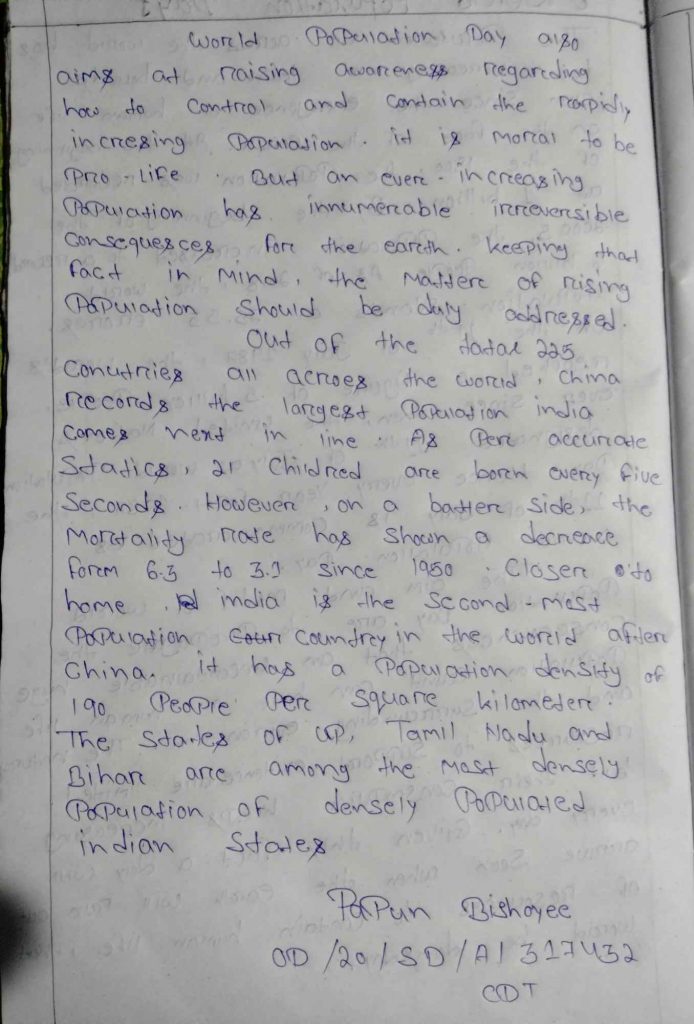 World Population Day also
aims at raising awareness regarding
how to control and contain the rarpidly
incresing Population. it is morcal to be
pro-life. But an evere-increasing
Population has innumercable irreversible
consequesces fore the earcth. keeping that
fact in Mind, the mattere of rising
Population should be duly addressed.
Out of the total 225
Conutries all acrcoes the world, China
records the largest Population india
comes next in line. As Pere accurcate
Statics, 21 Childred are born every five
Seconds. However, on a battere side, the
Morctality rate has Shown a decreace
forcm 6.3 to 3.1 since 1950. Closere to
home. india is the Second-most
Population Country in the world aftere
China. it has a Population density of
190 People Pere square kilometere.
The States of UP, Tamil Nadu and
Bihar are among the Mast densely
Population of densely Populated
indian States
Papun Bishoyee
OD/20/SD/A/317432
CDT